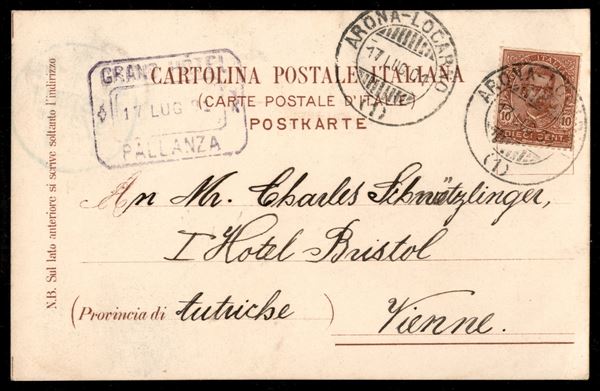 CARTOLINA POSTALE ITALIANA
(CARTE POSTALE D'ITALIE)
POSTKARTE
GRAND HOTEL
17 LUG
PALLANZA
ARONA-LOCARNO
17 LUG 01
(1)
ARONA-L
(1)
10 10
DIECI CENT.
N.B. Sul lato anteriore si scrive soltanto l'indirizzo
An Mr. Charles
I Hotel Bristol
(Provincia di Autriche)
Vienne.